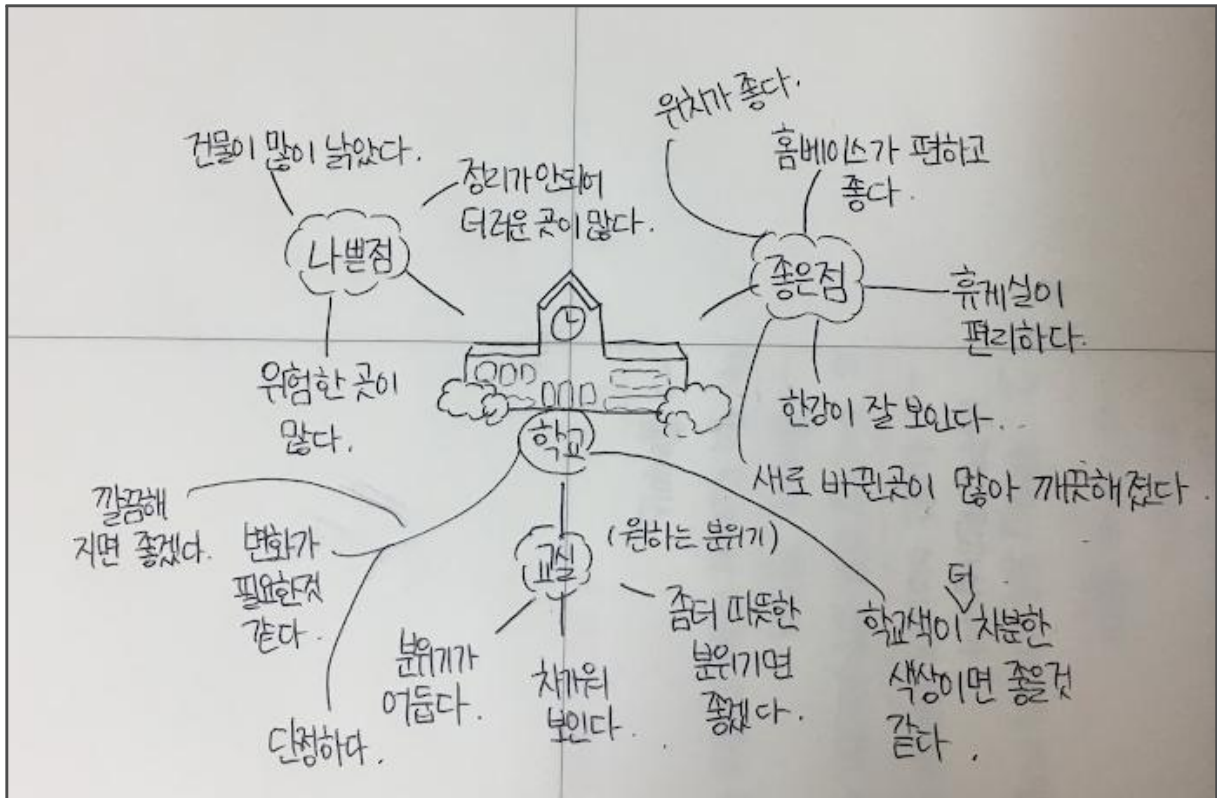 건물이 많이 낡았다.
정리가 안되어
더러운 곳이 많다.
나쁜점
위험한 곳이
많다.
위치가 좋다.
홈베이스가 편하고
좋다.
좋은점
휴게실이
편리하다.
한강이 잘 보인다..
새로 바뀐곳이 많아 깨끗해졌다.
학교
깔끔해
지면 좋겠다.
변화가
필요한것
같다.
단정하다.
교실
(원하는 분위기)
분위기가
어둡다.
차가워
보인다.
좀더 따뜻한
분위기면
좋겠다.
더
학교색이 차분한
색상이면 좋을것
같다.